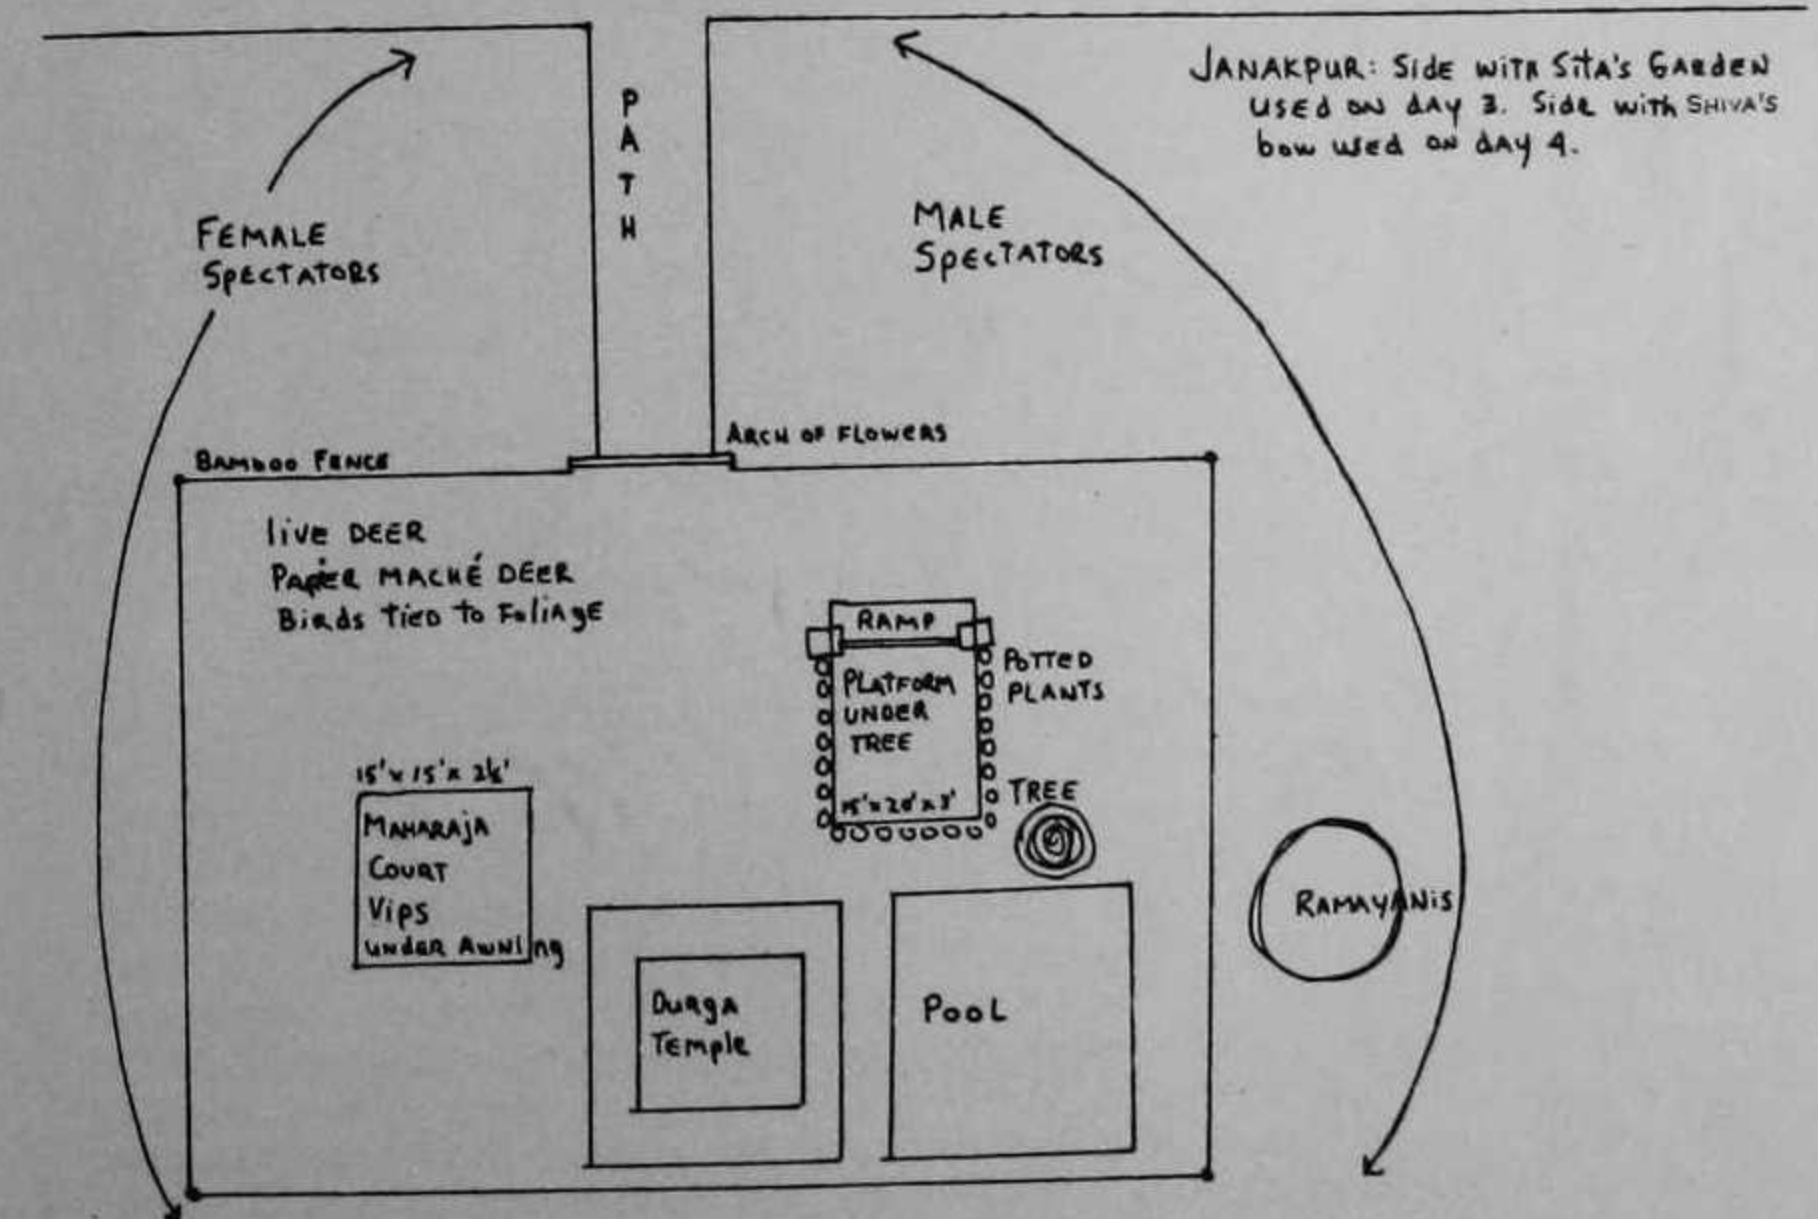 JANAKPUR: Side with Sita's Garden
used on day 3. Side with SHIVA'S
bow used on day 4.
PATH
FEMALE
SPECTATORS
MALE
SPECTATORS
ARCH OF FLOWERS
BAMBOO FENCE
live DEER
PAPIER MACHÉ DEER
Birds Tied to Foliage
RAMP
PLATFORM
UNDER
TREE
15' x 20' x 3'
POTTED
PLANTS
TREE
15' x 15' x
MAHARAJA
COURT
Vips
under Awning
RAMAYANIS
Durga
Temple
POOL